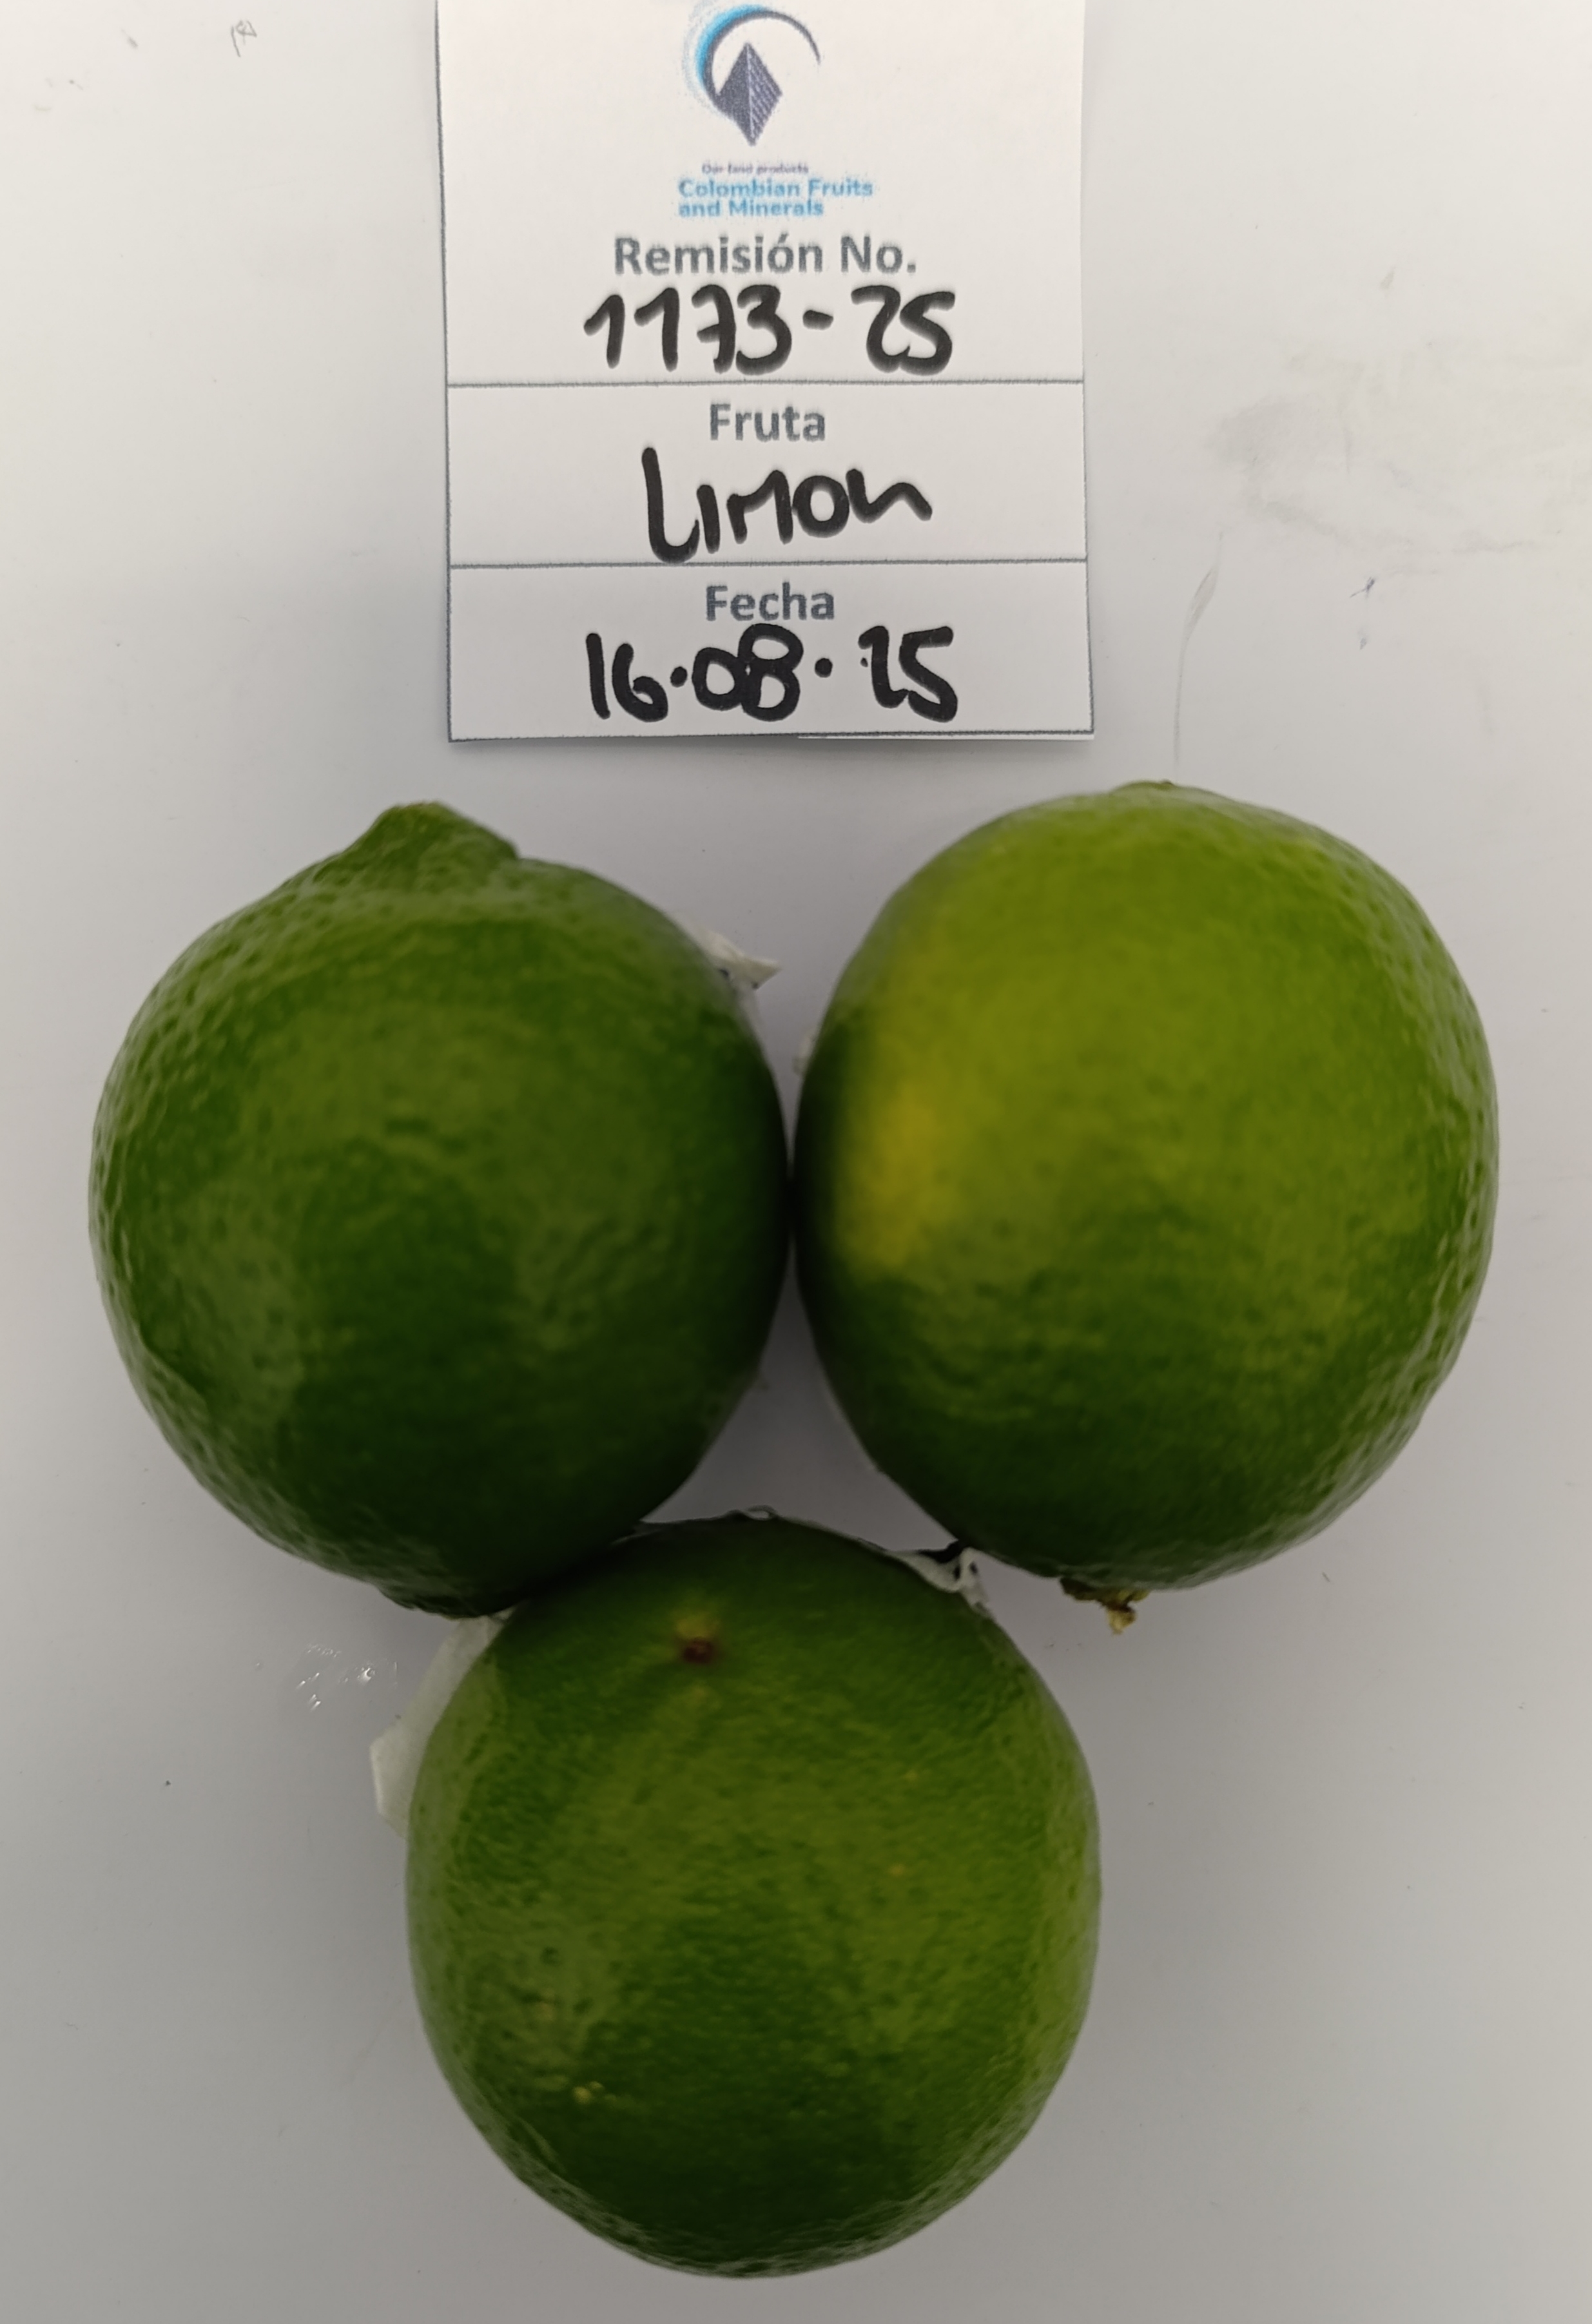 Our land products
Colombian Fruits
and Minerals
Remisión No.
1173-25
Fruta
Limon
Fecha
16.08.25